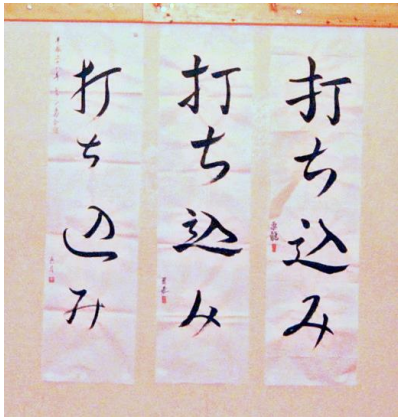 打ち込み
打ち込み
打ち込み